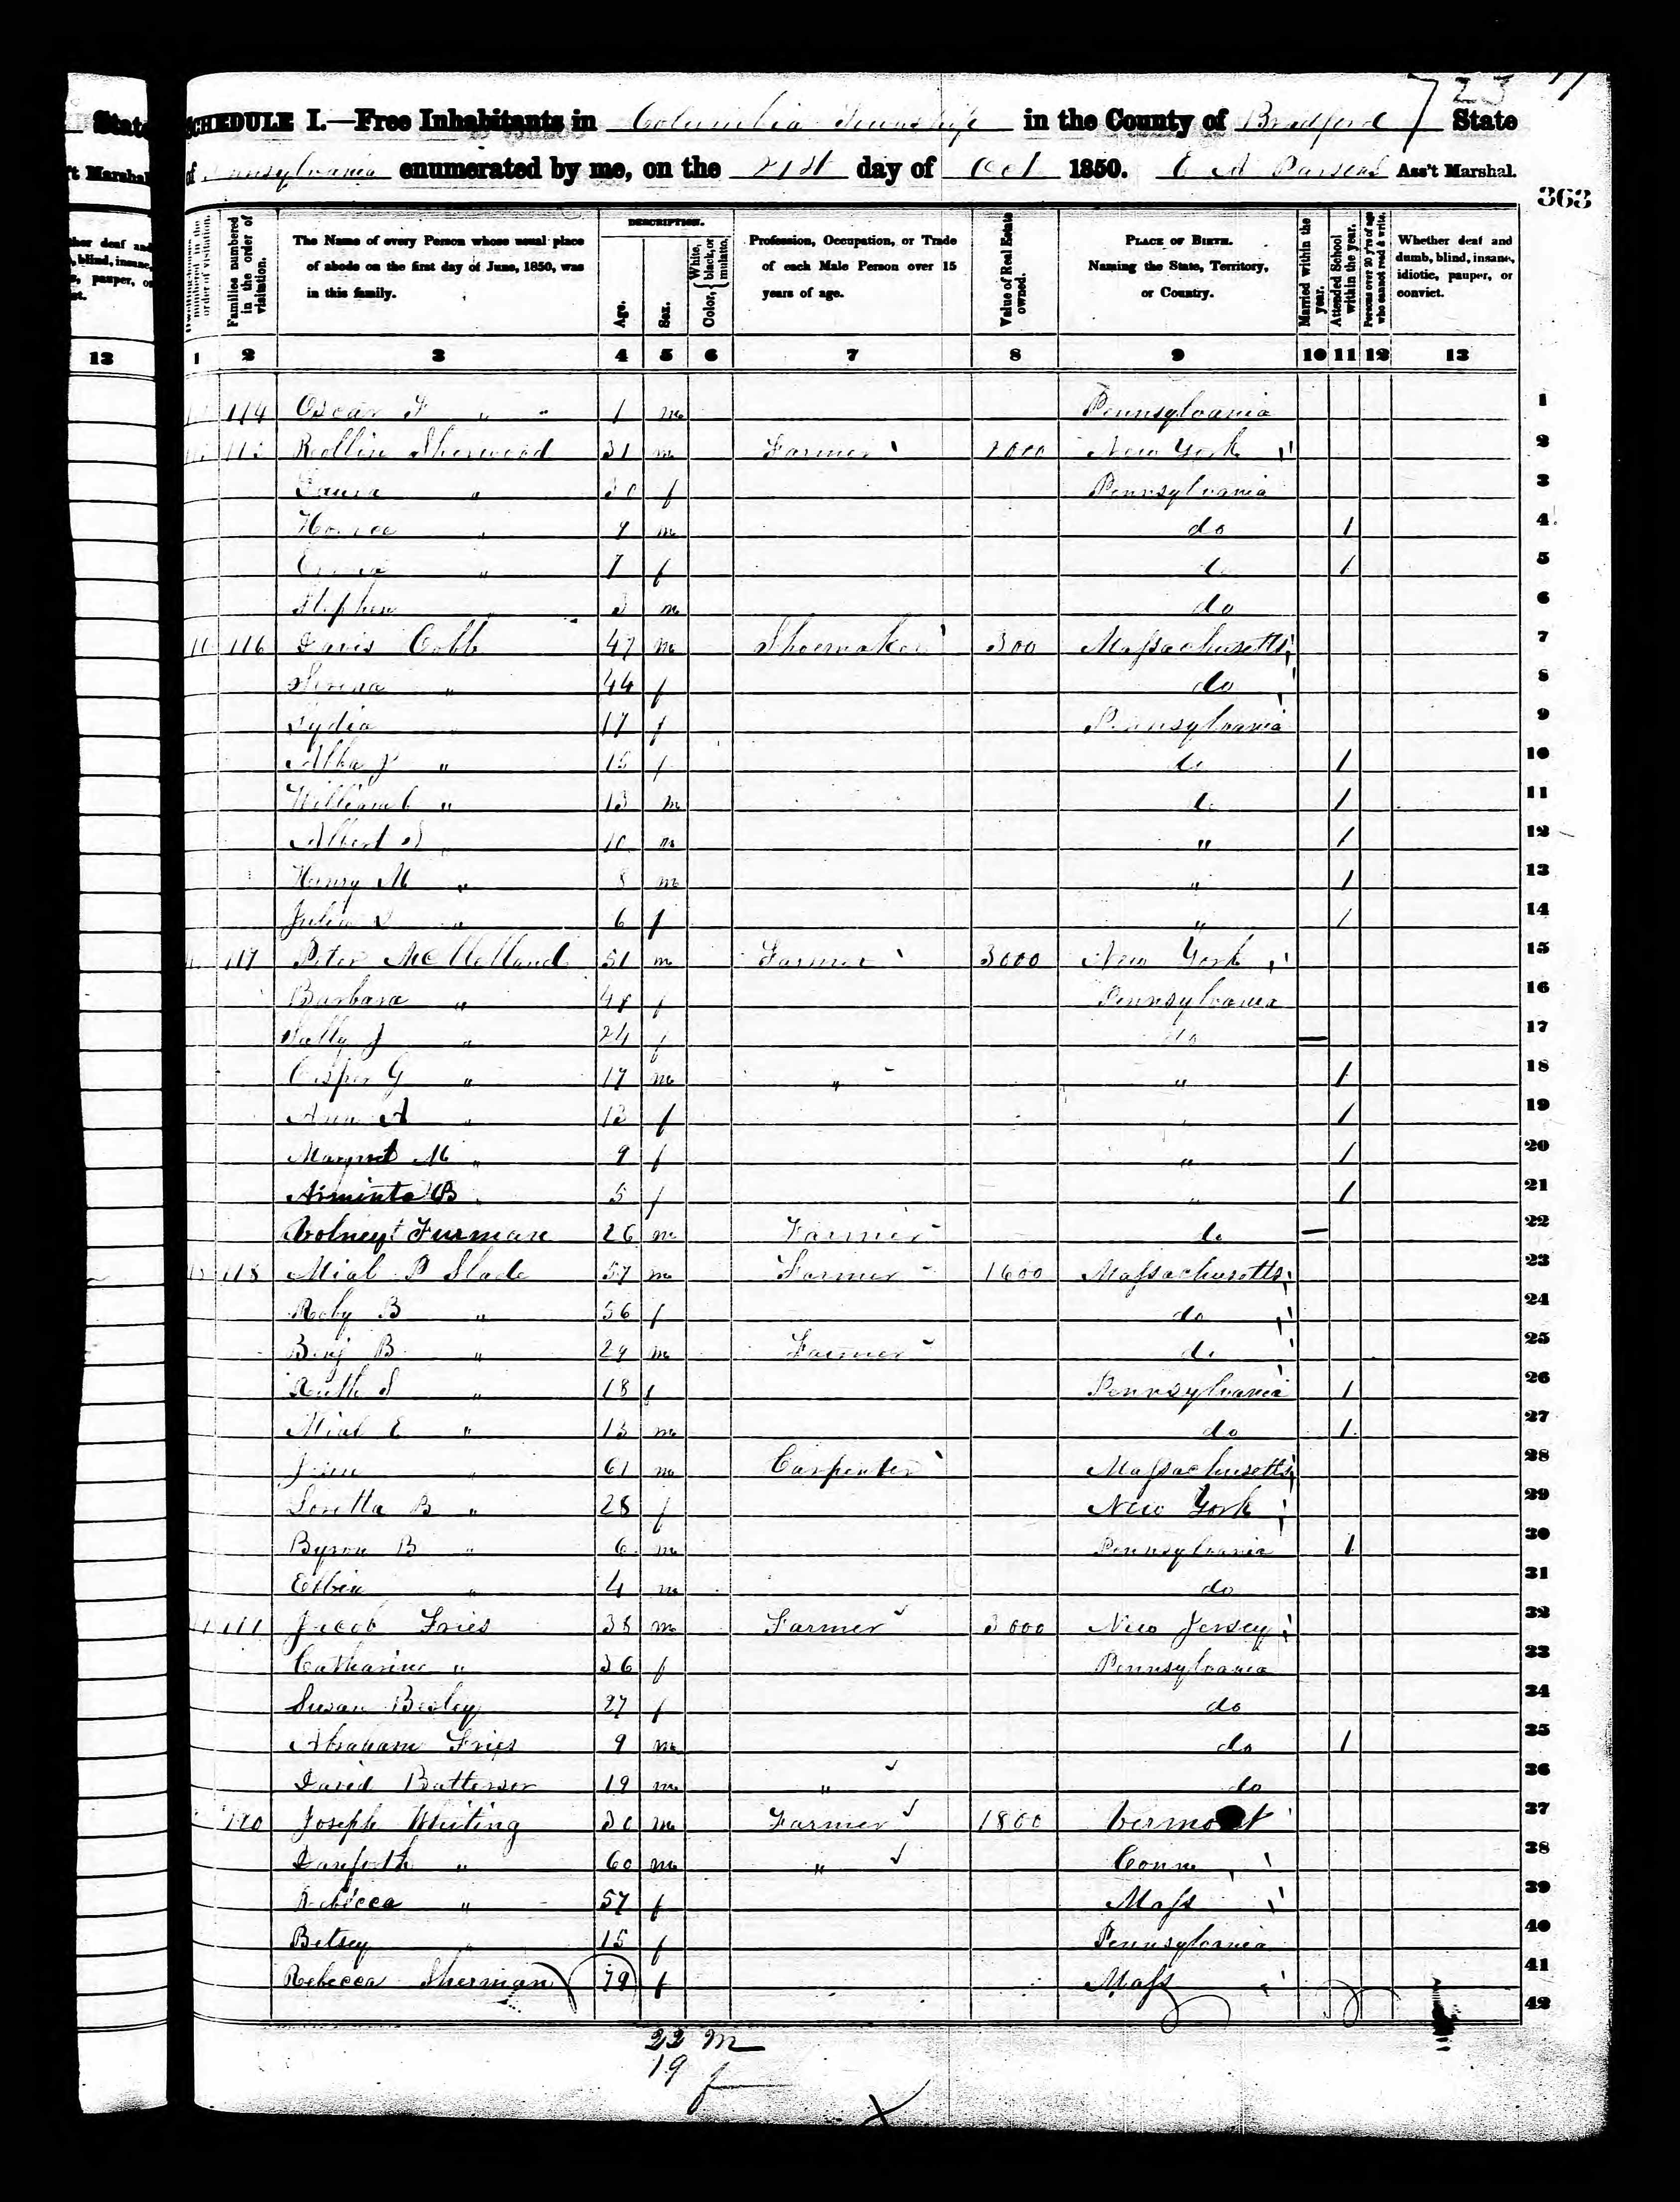 State
't Marshal
ther deaf and
, blind, insane,
c, pauper, or
ct.
13
7 23
SCHEDULE I.—Free Inhabitants in Columbia Township in the County of Bradford State
of Pennsylvania enumerated by me, on the 21st day of Oct 1850. E A Parsons Ass't Marshal.
363
Dwelling-houses numbered in the order of visitation.
Families numbered in the order of visitation.
The Name of every Person whose usual place of abode on the first day of June, 1850, was in this family.
DESCRIPTION.
Age.
Sex.
Color, { White, black, or mulatto.
Profession, Occupation, or Trade of each Male Person over 15 years of age.
Value of Real Estate owned.
PLACE OF BIRTH. Naming the State, Territory, or Country.
Married within the year.
Attended School within the year.
Persons over 20 y'rs of age who cannot read & write.
Whether deaf and dumb, blind, insane, idiotic, pauper, or convict.
1 2 3 4 5 6 7 8 9 10 11 12 13
114 Oscar F " " 1 m Pennsylvania 1
115 Rollin Sherwood 31 m Farmer 2000 New York 2
Laura " 30 f Pennsylvania 3
" 9 m do 4
" 7 f do 1 5
Stephen 3 m do 6
116 Davis Cobb 47 m Shoemaker 300 Massachusetts 7
" 44 f do 8
Lydia " 17 f Pennsylvania 9
" 15 f do 1 10
William C " 13 m do 1 11
Albert S " 10 m " 1 12
Henry M " 8 m " 1 13
" 6 f " 1 14
117 Peter McClelland 51 m Farmer 3000 New York 15
Barbara " 48 f Pennsylvania 16
Sally J " 24 f do — 17
G " 17 m " " 1 18
Ann A " 13 f " 1 19
Margret M " 9 f " 1 20
Arminta B " 5 f " 1 21
Volney Furman 26 m Farmer do — 22
118 Mial P Slade 57 m Farmer 1600 Massachusetts 23
Roby B " 56 f do 24
Benj B " 29 m Farmer do 25
Ruth S " 18 f Pennsylvania 1 26
Mial E " 13 m do 1 27
" 61 m Carpenter Massachusetts 28
Loretta B " 28 f New York 29
Byron B " 6 m Pennsylvania 1 30
" 4 m do 31
Jacob Fries 38 m Farmer 3000 New Jersey 32
Catharine " 36 f Pennsylvania 33
Susan 27 f do 34
Abraham Fries 9 m do 1 35
David 19 m " do 36
120 Joseph Whiting 30 m Farmer 1800 Vermont 37
Danforth " 60 m " Conn 38
Rebecca " 57 f Mass 39
Betsey " 15 f Pennsylvania 40
Rebecca Sherman 79 f Mass 41
42
22 m
19 f